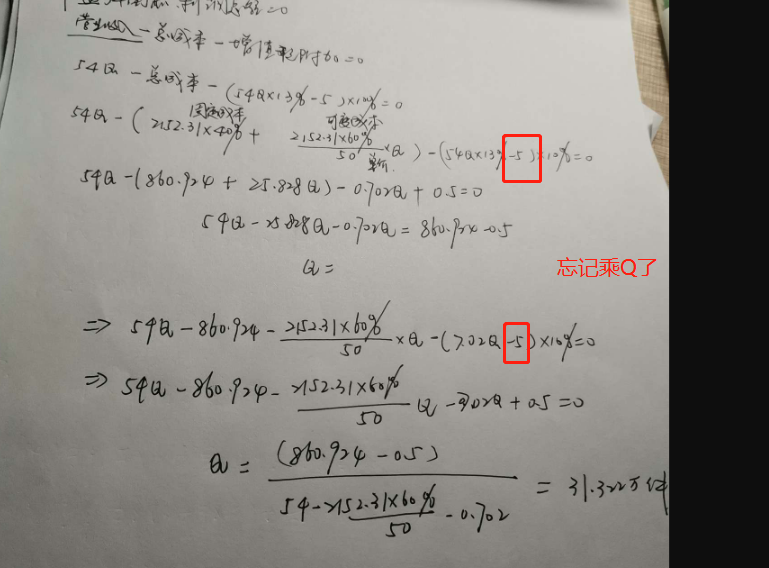 营业收入-总成本-增值税附加=0
54Q-总成本-(54Q×13%-5)×10%=0
固定成本 可变成本
54Q-(2152.31×40%+\frac{2152.31×60%}{50}×Q)-(54Q×13%-5)×10%=0
单价
54Q-(860.924+25.828Q)-0.702Q+0.5=0
54Q-25.828Q-0.702Q=860.924-0.5
Q=
忘记乘Q了
=>54Q-860.924-\frac{2152.31×60%}{50}×Q-(7.02Q-5)×10%=0
=>54Q-860.924-\frac{2152.31×60%}{50}Q-0.702Q+0.5=0
Q=\frac{(860.924-0.5)}{54-\frac{2152.31×60%}{50}-0.702}=31.322万件